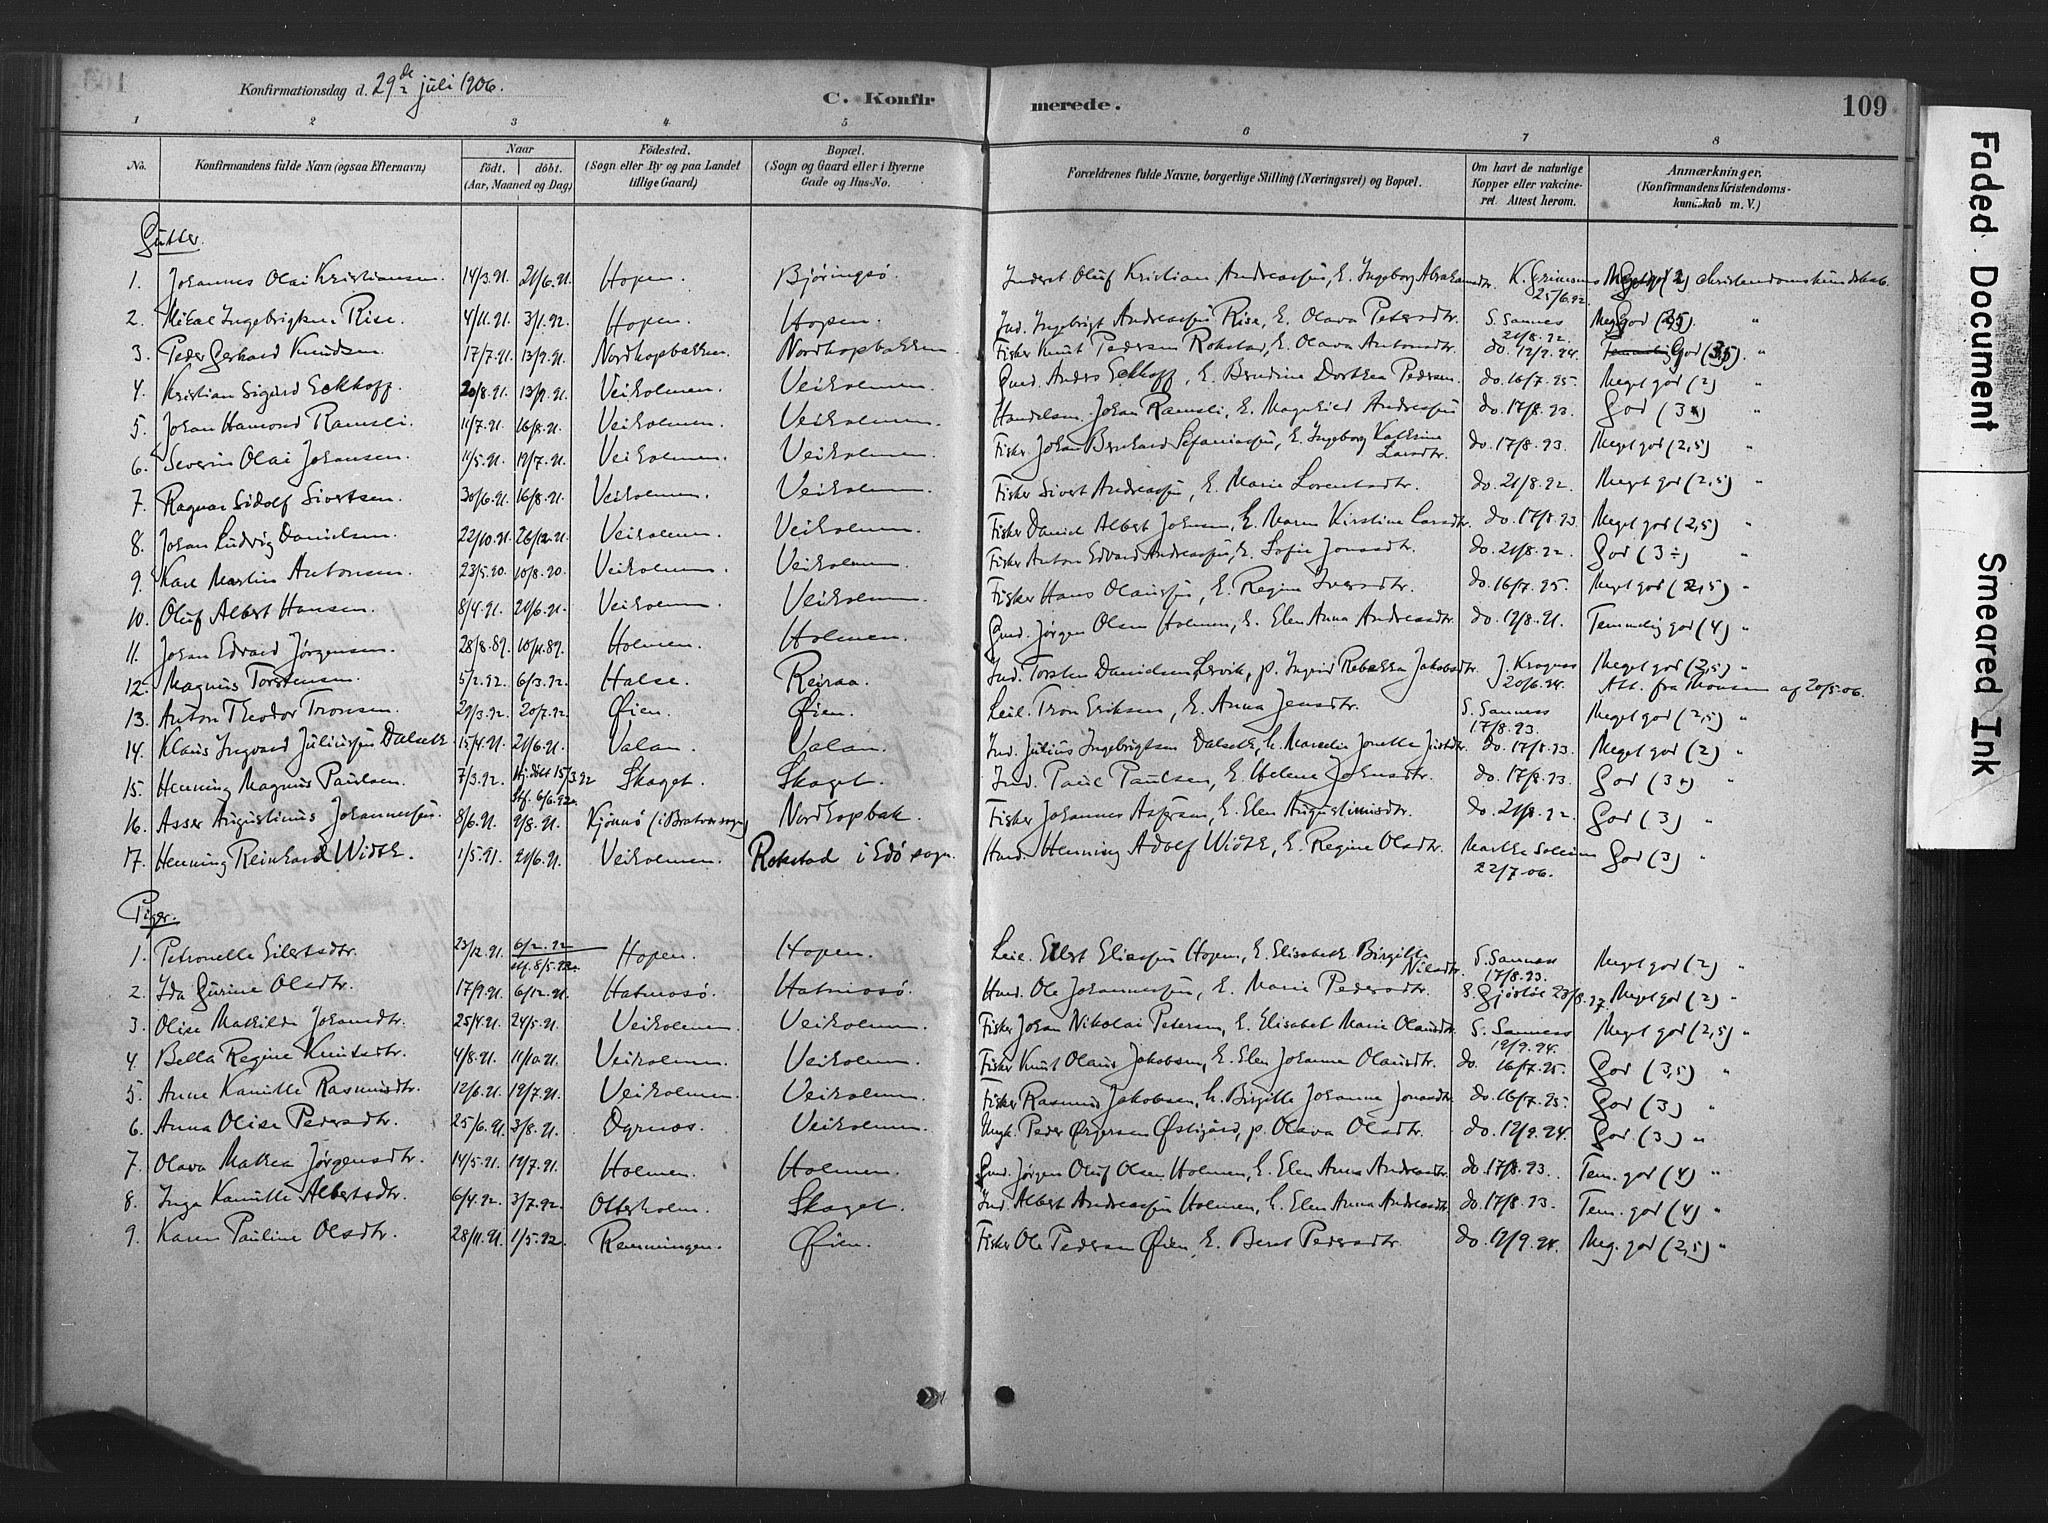 109
Konfirmationsdag d. 29de juli 1906.
C. Konfirmerede.
1 2 3 4 5 6 7 8
No. Konfirmandens fulde Navn (ogsaa Efternavn) Naar født. døbt. (Aar, Maaned og Dag) Fødested. (Sogn eller By og paa Landet tillige Gaard) Bopæl. (Sogn og Gaard eller i Byerne Gade og Hus-No.) Forældrenes fulde Navne, borgerlige Stilling (Næringsvei) og Bopæl. Om havt de naturlige Kopper eller vakcineret. Attest herom. Anmærkninger. (Konfirmandens Kristendomskundskab m. V.)
Gutter.
1. Johannes Olai Kristiansen 14/3.91. 21/6.91. Hopen. Bjøringsø. Inderst Oluf Kristian Andreassen, E. Ingeborg Abrahamsdtr. 25/6.92 Meget god (2) christendomskundskab.
2. Mikal Ingebrigtsen Rise. 4/11.91. 3/1.92. Hopen. Hopen. Ind. Ingebrigt Andreassen Rise, E. Olava Petersdtr. S. Sannes 21/8.92. Meg. god (2,5). "
3. Peder Gerhard Knudsen. 17/7.91. 13/9.91. Nordhopbakken. Nordhopbakken. Fisker Knut Pedersen Rokstad, E. Olava Antonsdtr. do. 12/9.94. God (3,5). "
4. Kristian Sigurd Eckhoff. 20/8.91. 13/9.91. Veiholmen. Veiholmen. Gmd. Anders Eckhoff, E. Berndine Dorthea Pedersen. do. 16/7.95. Meget god (2) "
5. Johan Hamond Ramsli. 11/7.91. 16/8.91. Veiholmen. Veiholmen. Handelsm. Johan Ramsli, E. Magnhild Andreassen do. 17/8.93. God (3+) "
6. Severin Olai Johansen. 11/5.91. 19/7.91. Veiholmen. Veiholmen. Fisker Johan Bernhard Sefaniassen, E. Ingeborg Kathrine Larsdtr. do. 17/8.93. Meget god (2,5) "
7. Ragnar Sidolf Sivertsen. 30/6.91. 16/8.91. Veiholmen. Veiholmen. Fisker Sivert Andreassen, E. Marie Lorentsdtr. do. 21/8.92. Meget god (2,5) "
8. Johan Ludvig Danielsen. 22/10.91. 26/12.91. Veiholmen. Veiholmen. Fisker Daniel Albert Johnsen, E. Maren Kirstine Larsdtr. do. 17/8.93. Meget god (2,5) "
9. Karl Martin Antonsen. 23/5.90. 10/8.90. Veiholmen. Veiholmen. Fisker Anton Edvard Andreassen, E. Sofie Jonasdtr. do. 21/8.92. God (3÷) "
10. Oluf Albert Hansen. 8/4.91. 21/6.91. Veiholmen. Veiholmen. Fisker Hans Olaussen, E. Regine Iversdtr. do. 16/7.95. Meget god (2,5) "
11. Johan Edvard Jørgensen. 28/8.89. 10/11.89. Holmen. Holmen. Gmd. Jørgen Olsen Holmen, E. Elen Anna Andreasdtr. do. 19/8.91. Temmelig god (4) "
12. Magnus Torstensen. 5/2.92. 6/3.92. Halse. Reiraa. Ind. Torsten Danielsen Lervik, p. Ingrid Rebekka Jakobsdtr. J. Kragnes 20/6.94. Meget god (2,5) " Att. fra Monsen af 20/5.06.
13. Anton Theodor Tronsen. 29/3.92. 20/7.92. Øien. Øien. Leil. Tron Eriksen, E. Anna Jensdtr. S. Sannes 17/8.93. Meget god (2,5) "
14. Klaus Ingvard Juliussen Dalseth 15/4.91. 21/6.91. Valan. Valan. Ind. Julius Ingebrigtsen Dalseth, E. Marselie Jonetta do. 17/8.93. Meget god (2) "
15. Henning Magnus Paulsen. 7/3.92. Hj.døbt 15/3.92 Stf. 6/6.92. Skaget. Skaget. Ind. Paul Paulsen, E. Helene Johnsdtr. do. 17/8.93. God (3+) "
16. Asser Augustinus Johannessen. 8/6.91. 9/8.91. Kjønnø (i Bratvær sogn) Nordhopbak. Fisker Johannes Assersen, E. Elen Augustinusdtr. do. 21/8.92. God (3) "
17. Henning Reinhard Width. 1/5.91. 21/6.91. Veiholmen. Rokstad i Edø sogn. Hand. Henning Adolf Width, E. Regine Olsdtr. Marthe Soleim 22/7.06. God (3) "
Piger.
1. Petronelle Eilertsdtr. 23/12.91. 6/2.92 stf. 8/5.92. Hopen. Hopen. Leil. Eilert Eliassen Hopen, E. Elisabeth Birgitte Nilsdtr. S. Sannes 17/8.93. Meget god (2) "
2. Ida Gurine Olsdtr. 17/9.91. 6/12.91. Hatmosø. Hatmosø. Husd. Ole Johannessen, E. Marie Pedersdtr. 23/8.97. Meget god (2) "
3. Olise Mathilde Johansdtr. 25/4.91. 24/5.91. Veiholmen. Veiholmen. Fisker Johan Nikolai Petersen, E. Elisabet Marie Olausdtr. S. Sannes 12/9.94. Meget god (2,5) "
4. Bella Regine Knutsdtr. 4/8.91. 11/10.91. Veiholmen. Veiholmen. Fisker Knut Olaus Jakobsen, E. Elen Johanne Olausdtr. do. 16/7.95. God (3,5) "
5. Anne Kamille Rasmusdtr. 12/6.91. 19/7.91. Veiholmen. Veiholmen. Fisker Rasmus Jakobsen, E. Birgitte Johanne Jonasdtr. do. 16/7.95. God (3) "
6. Anna Olise Pedersdtr. 25/6.91. 3/8.91. Dyrnes. Veiholmen. Ungk. Peder Østigård, p. Olava Olsdtr. do. 12/9.94. God (3) "
7. Olava Mathea Jørgensdtr. 14/5.91. 19/7.91. Holmen. Holmen. Gmd. Jørgen Oluf Olsen Holmen, E. Elen Anna Andreasdtr. do. 17/8.93. Tem. god (4) "
8. Inga Kamille Albertsdtr. 6/4.92. 3/7.92. Otterholm. Skaget. Ind. Albert Andreassen Holmen, E. Elen Anna Andreasdtr. do. 17/8.93. Tem. god (4) "
9. Karen Pauline Olsdtr. 28/11.91. 1/5.92. Remmingen. Øien. Fisker Ole Pedersen Øien, E. Beret Pedersdtr. do. 12/9.94. Meg. god (2,5) "
Faded Document
Smeared Ink